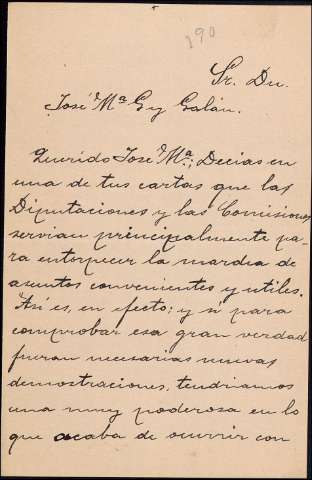 190
Sr. Dn.
José Mª G y Galán.
Querido José Mª; Decias en
una de tus cartas que las
Diputaciones y las Comisiones
servian principalmente pa-
ra entorpecer la marcha de
asuntos convenientes y utiles.
Así es, en efecto; y si para
comprobar esa gran verdad
fueran necesarias nuevas
demostraciones, tendriamos
una muy poderosa en lo
que acaba de ocurrir con